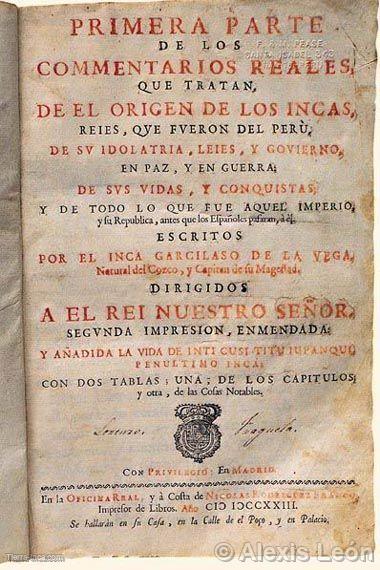 PRIMERA PARTE
DE LOS
COMMENTARIOS REALES,
QUE TRATAN,
DE EL ORIGEN DE LOS INCAS,
REIES, QVE FVERON DEL PERÙ,
DE SV IDOLATRIA, LEIES, Y GOVIERNO,
EN PAZ, Y EN GUERRA;
DE SVS VIDAS, Y CONQUISTAS;
Y DE TODO LO QUE FUE AQUEL IMPERIO,
y su Republica, antes que los Españoles pasaran, à èl.
ESCRITOS
POR EL INCA GARCILASO DE LA VEGA,
Natural del Cozco, y Capitan de su Magestad.
DIRIGIDOS
A EL REI NUESTRO SEÑOR.
SEGVNDA IMPRESION, ENMENDADA;
Y AÑADIDA LA VIDA DE INTI CUSI TITU IUPANQUI,
PENULTIMO INCA;
CON DOS TABLAS; UNA; DE LOS CAPITULOS;
y otra, de las Cosas Notables.
Lorenzo
CON PRIVILEGIO; EN MADRID.
En la OFICINA REAL, y à Costa de NICOLAS RODRIGUEZ FRANCO,
Impresor de Libros. Año CIƆ IƆCCXXIII.
Se hallaràn en su Casa, en la Calle de el Poço, y en Palacio.
Tierra-Inca.com
© Alexis León